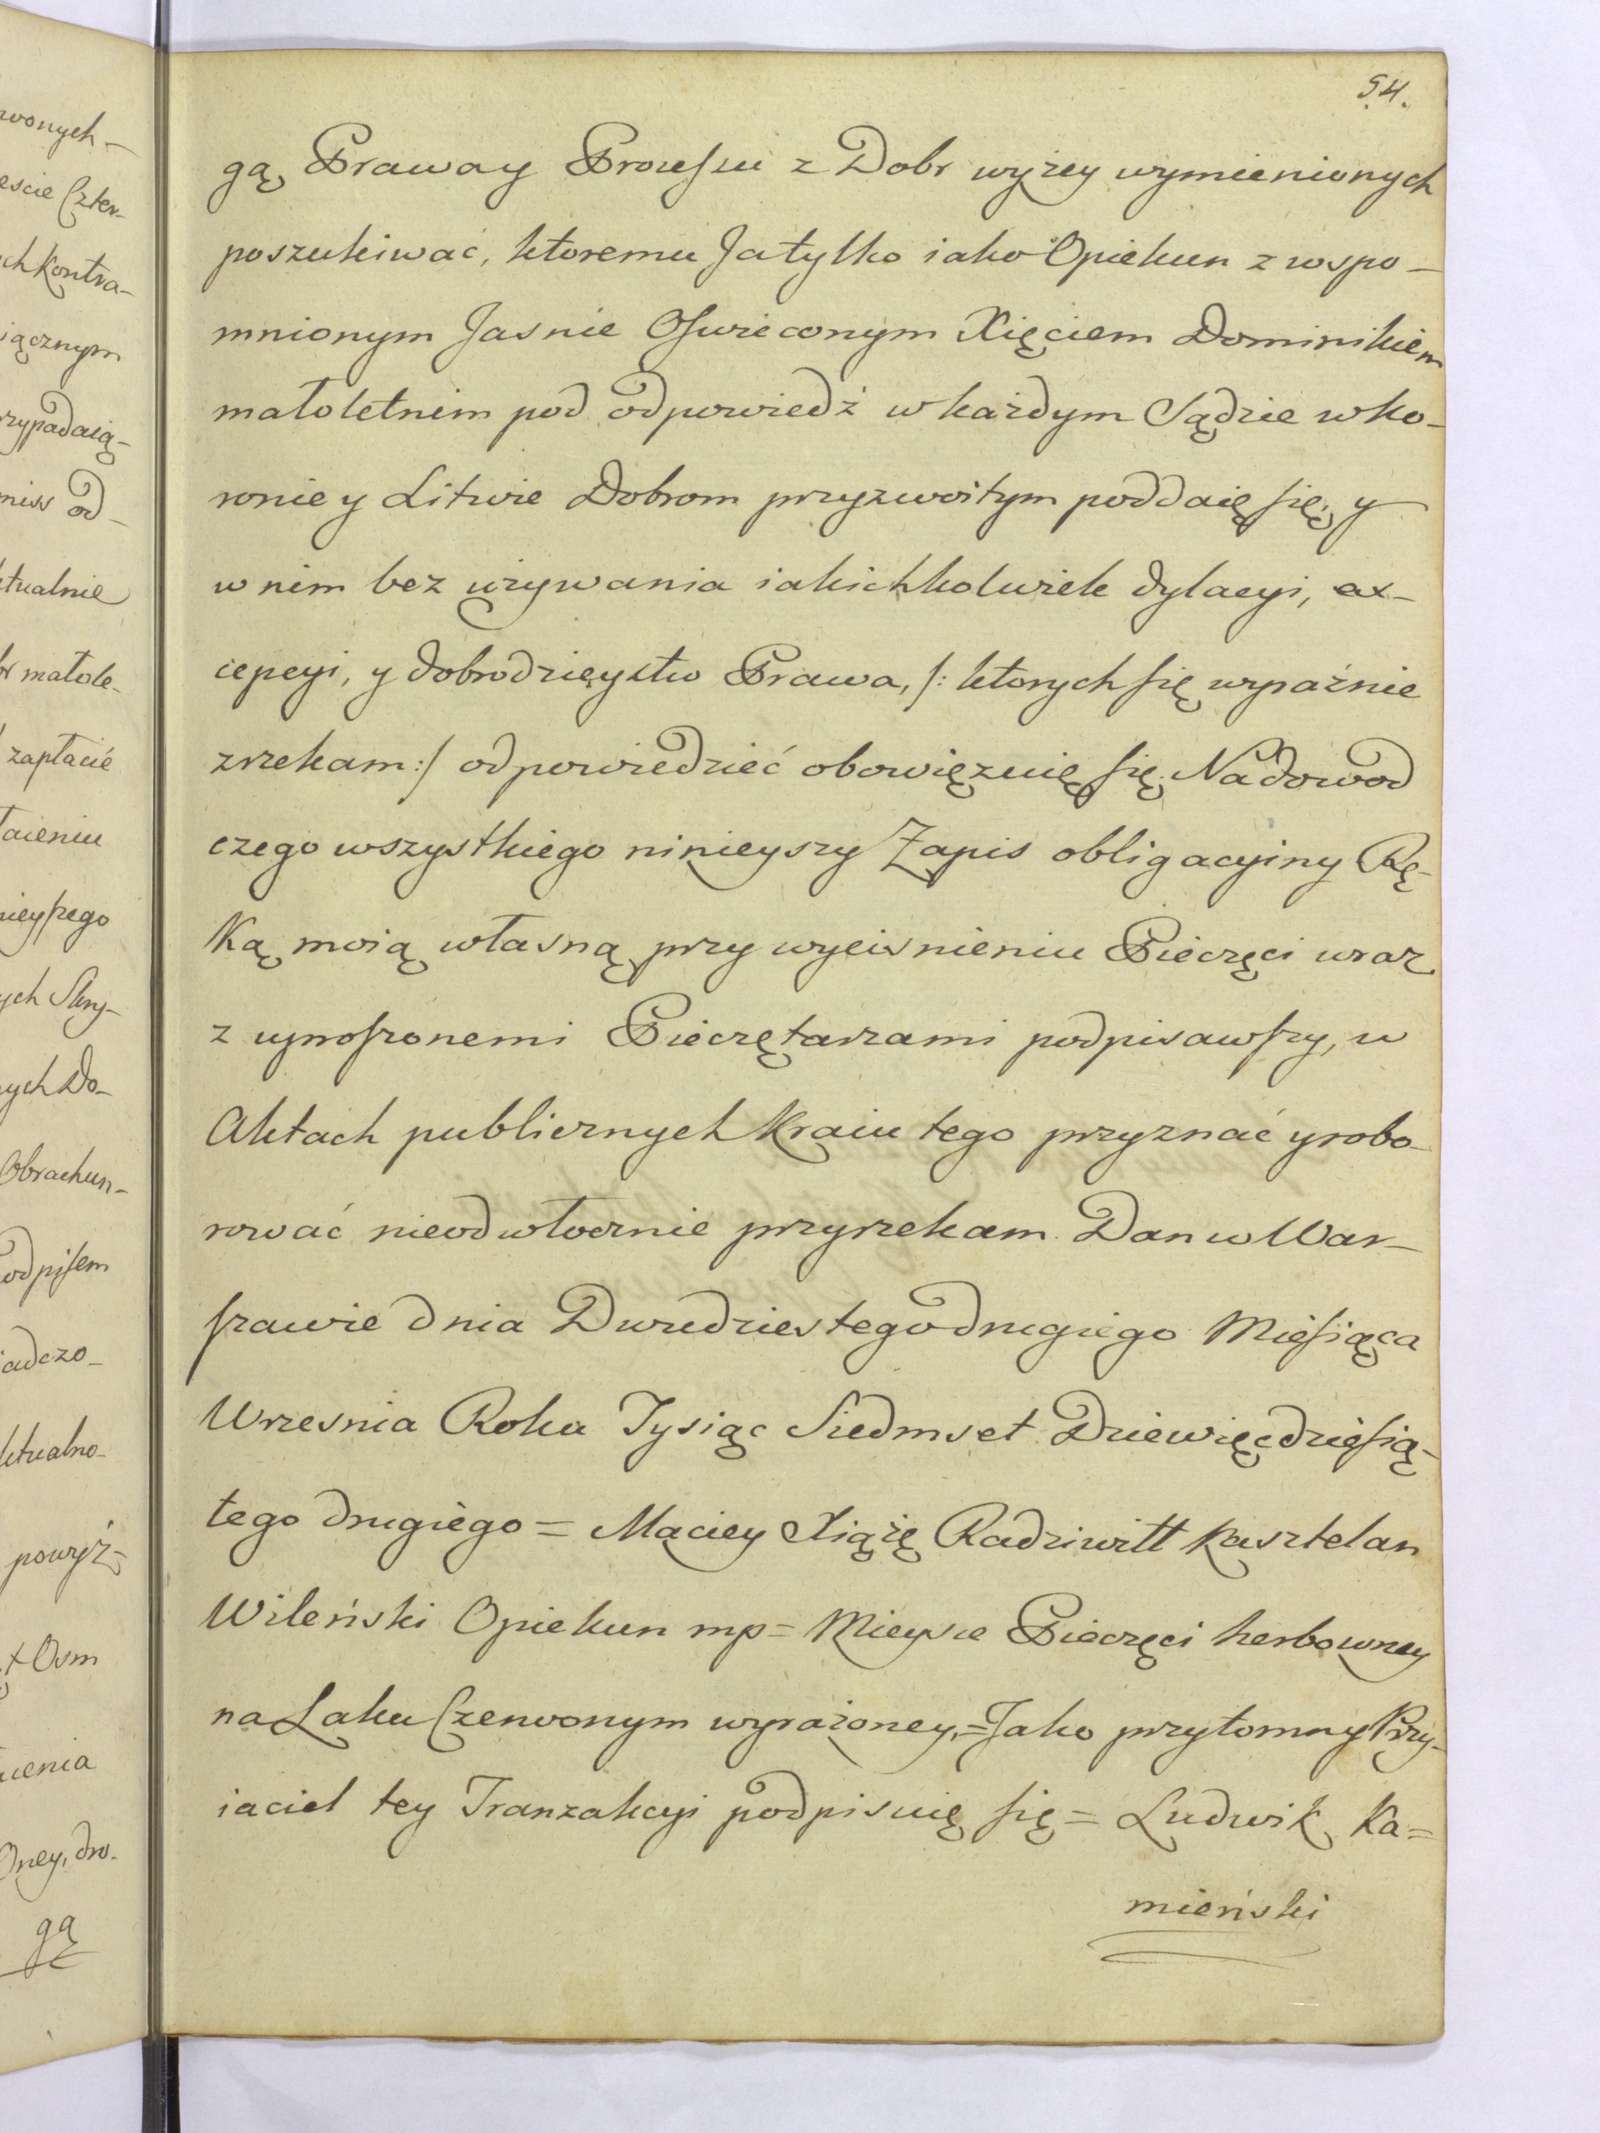 54.
gą Praway Processu z Dobr wyżey wymienionych
poszukiwać, ktoremu Ja tylko iako Opiekun z wspo-
mnionym Jasnie Oswieconym Xięciem Dominikiem
małoletnim pod odpowiedź w każdym Sądzie w ko-
ronie y Litwie Dobrom przyzwoitym poddaię się, y
w nim bez używania iakichkolwiek dylacyi, ex-
cepcyi, y dobrodzieystw Prawa, /: ktorych się wyraźnie
zrzekam :/ odpowiedzieć obowięzuię się. Na dowod
czego wszystkiego ninieyszy Zapis obligacyiny Rę-
Ką moią własną przy wycisnieniu Pieczęci wraz
z uproszonemi Pieczętarzami podpisawszy, w
Aktach publicznych Kraiu tego przyznać y robo-
rować nieodwłocznie przyrzekam. Dan w War-
szawie dnia Dwudziestego drugiego Miesiąca
Wrzesnia Roku Tysiąc Siedmset Dziewięćdziesią-
tego drugiego = Maciey Xiążę Radziwiłł Kasztelan
Wileński Opiekun mp = Mieysce Pieczęci herbowney
na Laku Czerwonym wyrażoney, = Jako przytomny Przy-
iaciel tey Tranzakcyi podpisuię się = Ludwik Ka=
mieński
wonych -
eście Czter-
ch Kontra-
iącznym
rzypadaią-
miss od-
ktualnie
br małole-
zapłacić
nieyszego
ych Skry-
nych Do-
Obrachun-
odpisem
iadczo-
ktualno-
powyż-
Osm
Oney, dro-
gą